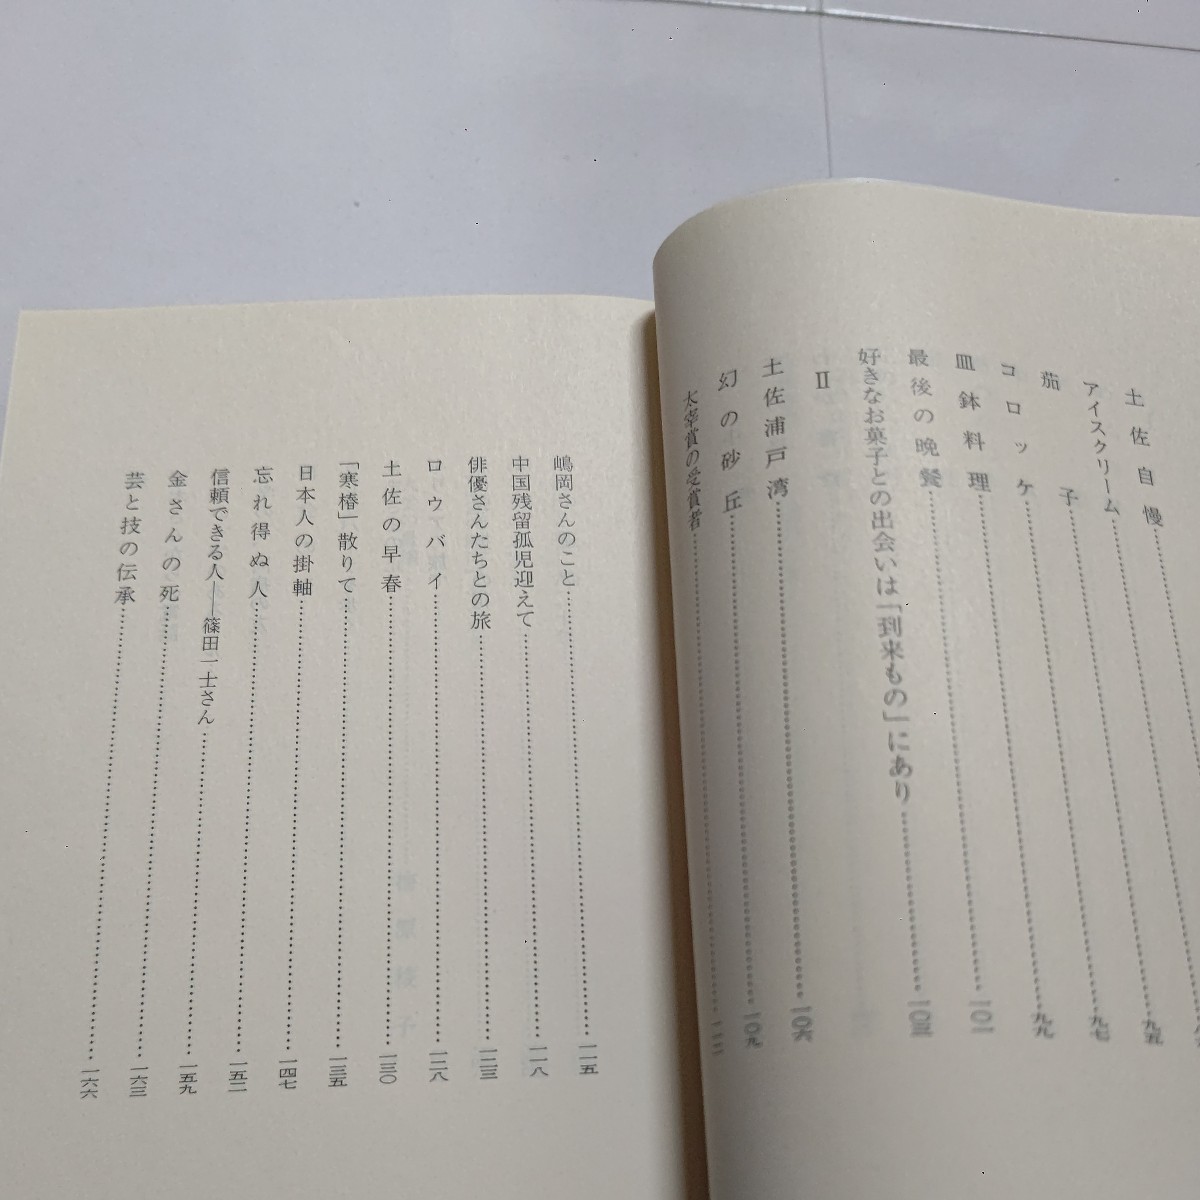 土佐自慢
アイスクリーム
茄子……九五
コロッケ……九七
皿鉢料理……九九
最後の晩餐……一〇一
好きなお菓子との出会いは「到来もの」にあり……一〇三
Ⅱ
土佐浦戸湾……一〇六
幻の砂丘……一〇九
太宰賞の受賞者……一一二
嶋岡さんのこと……一一五
中国残留孤児迎えて……一一八
俳優さんたちとの旅……一二三
ロウアバイ……一二八
土佐の早春……一三〇
「寒椿」散りて……一三五
日本人の掛軸……一四七
忘れ得ぬ人……一五二
信頼できる人——篠田一士さん……一五九
金さんの死……一六三
芸と技の伝承……一六六